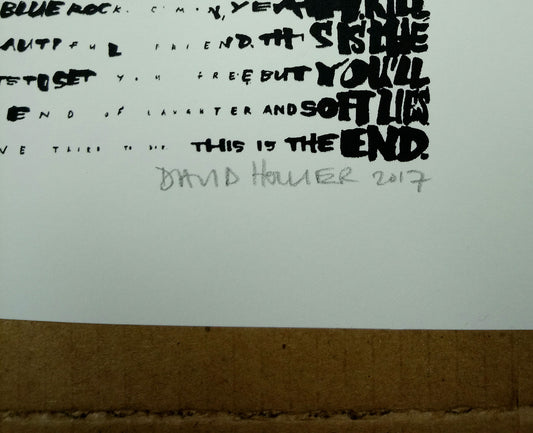 BLUE ROCK. C'MON, YEAH. KILL
AUTIFUL FRIEND. THIS IS THE
TS TO SET YOU FREE BUT YOU'LL
E END OF LAUGHTER AND SOFT LIES.
VE TRIED TO DIE. THIS IS THE END.
DAVID HOLLIER 2017